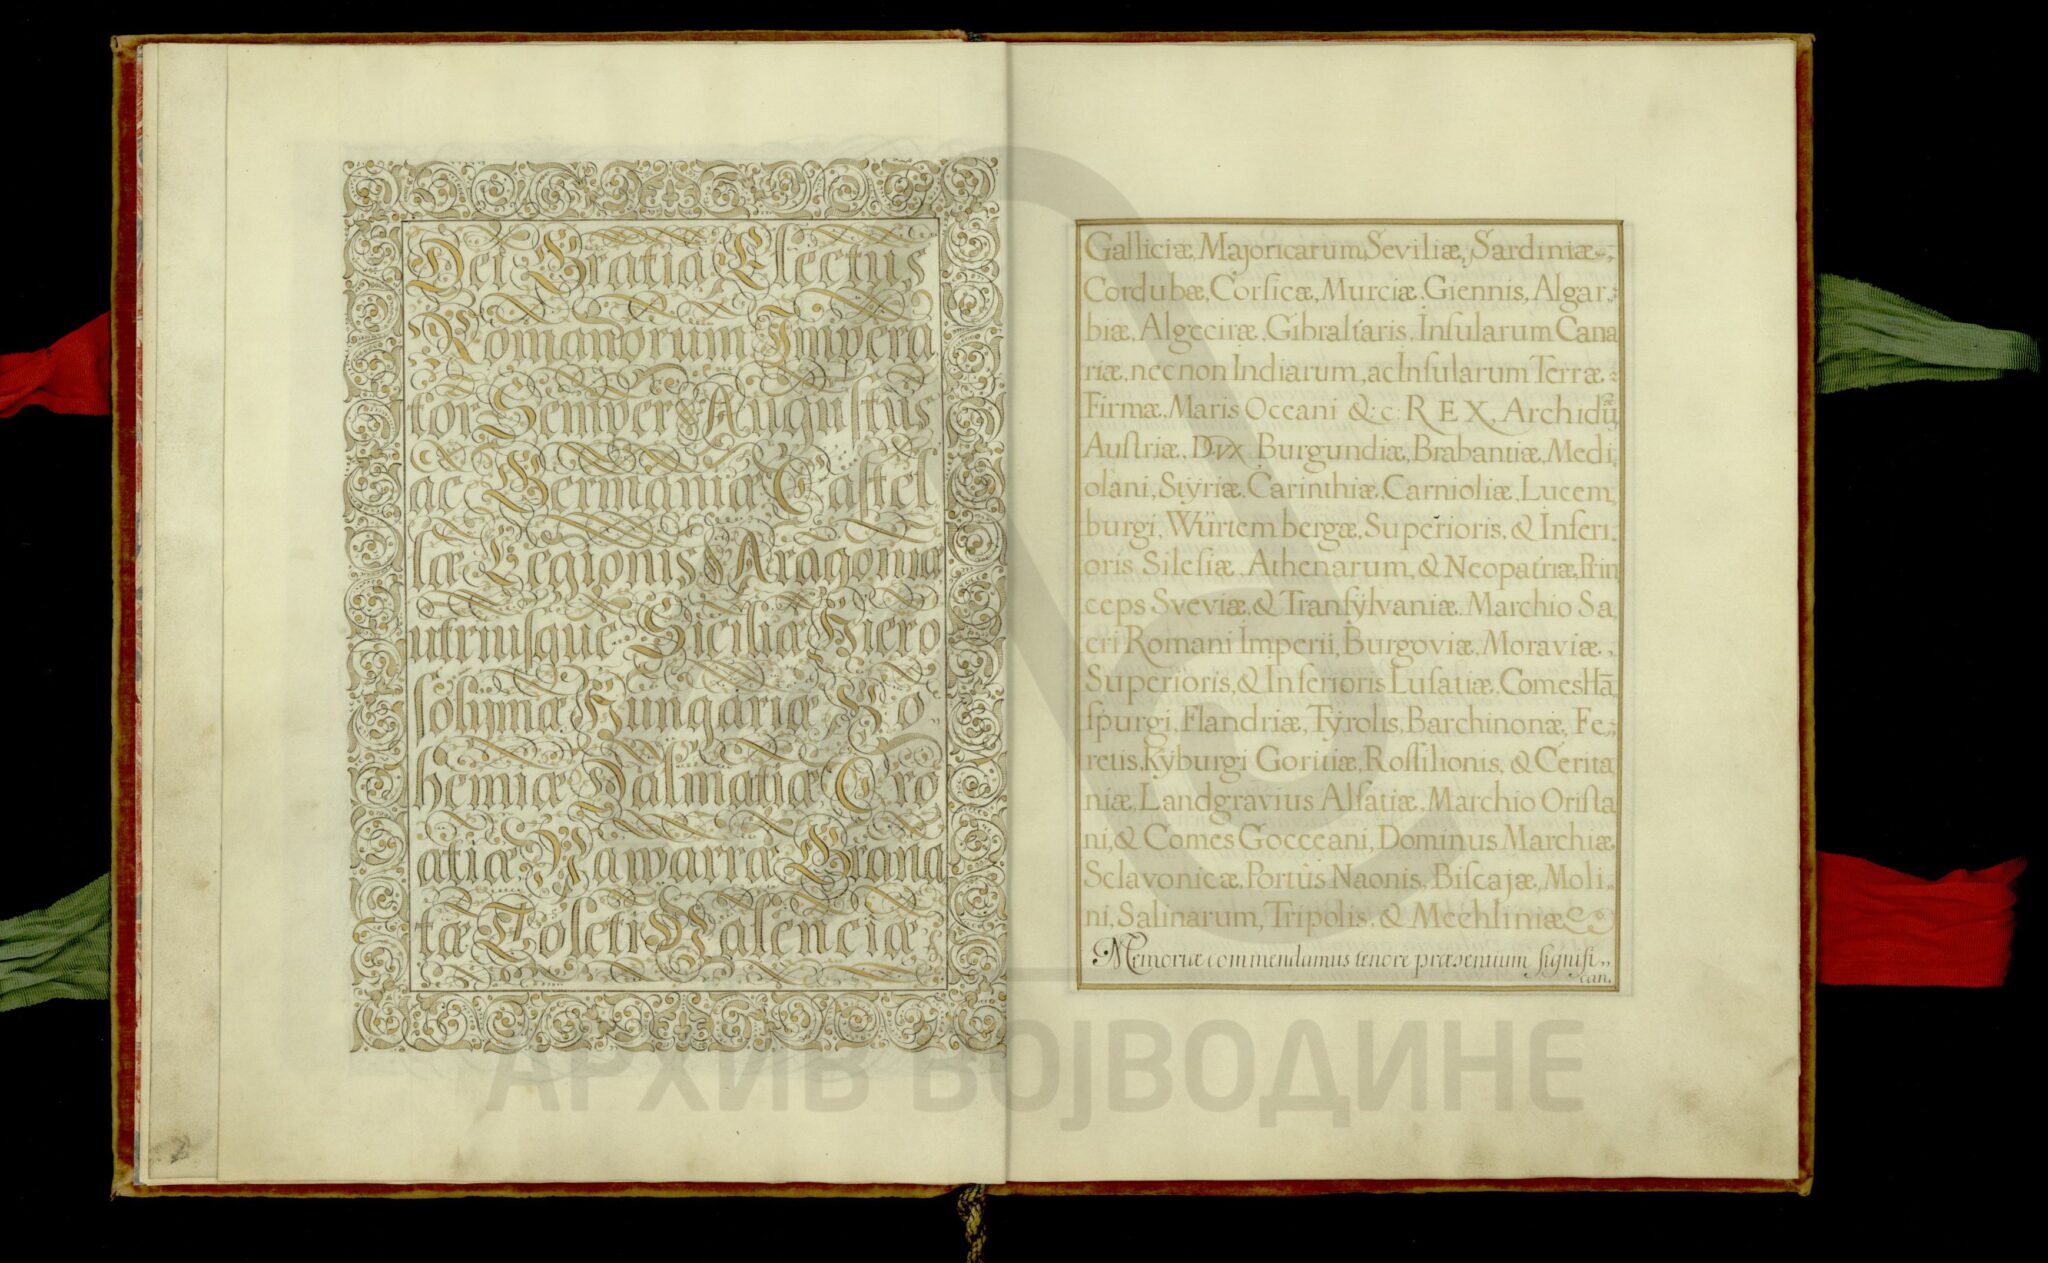 Dei Gratia Electus
Romanorum Impera
tor Semper Augustus
ac Germaniæ Castel
læ Legionis Aragoniæ
utriusque Siciliæ Hiero
solymæ Hungariæ Bo,,
hemiæ Dalmatiæ Cro
atiæ Nawarræ Grana
tæ Toleti Valenciæ
Galliciæ, Majoricarum, Seviliæ, Sardiniæ,
Cordubæ, Corsicæ, Murciæ, Giennis, Algar,,
biæ, Algeciræ, Gibraltaris, Insularum Cana
riæ, nec non Indiarum, ac Insularum Terræ
Firmæ, Maris Oceani &:c: REX, Archidũx
Austriæ, Dvx Burgundiæ, Brabantiæ, Medi,
olani, Stÿriæ, Carinthiæ, Carnioliæ, Lucem,
burgi, Würtembergæ, Superioris, & Inferi,
oris Silesiæ, Athenarum, & Neopatriæ, Prin
ceps Sveviæ, & Transÿlvaniæ, Marchio Sa,
cri Romani Imperii, Burgoviæ, Moraviæ,
Superioris, & Inferioris Lusatiæ, Comes Hã
spurgi, Flandriæ, Tÿrolis, Barchinonæ, Fe,,
retis, Kÿburgi Goritiæ, Rossilionis, & Cerita
niæ, Landgravius Alsatiæ, Marchio Orista
ni, & Comes Gocceani, Dominus Marchiæ
Sclavonicæ, Portûs Naonis, Biscajæ, Moli,
ni, Salinarum, Tripolis, & Mechliniæ
Memoriæ commendamus tenore præsentium signifi,,
can,
АРХИВ ВОЈВОДИНЕ